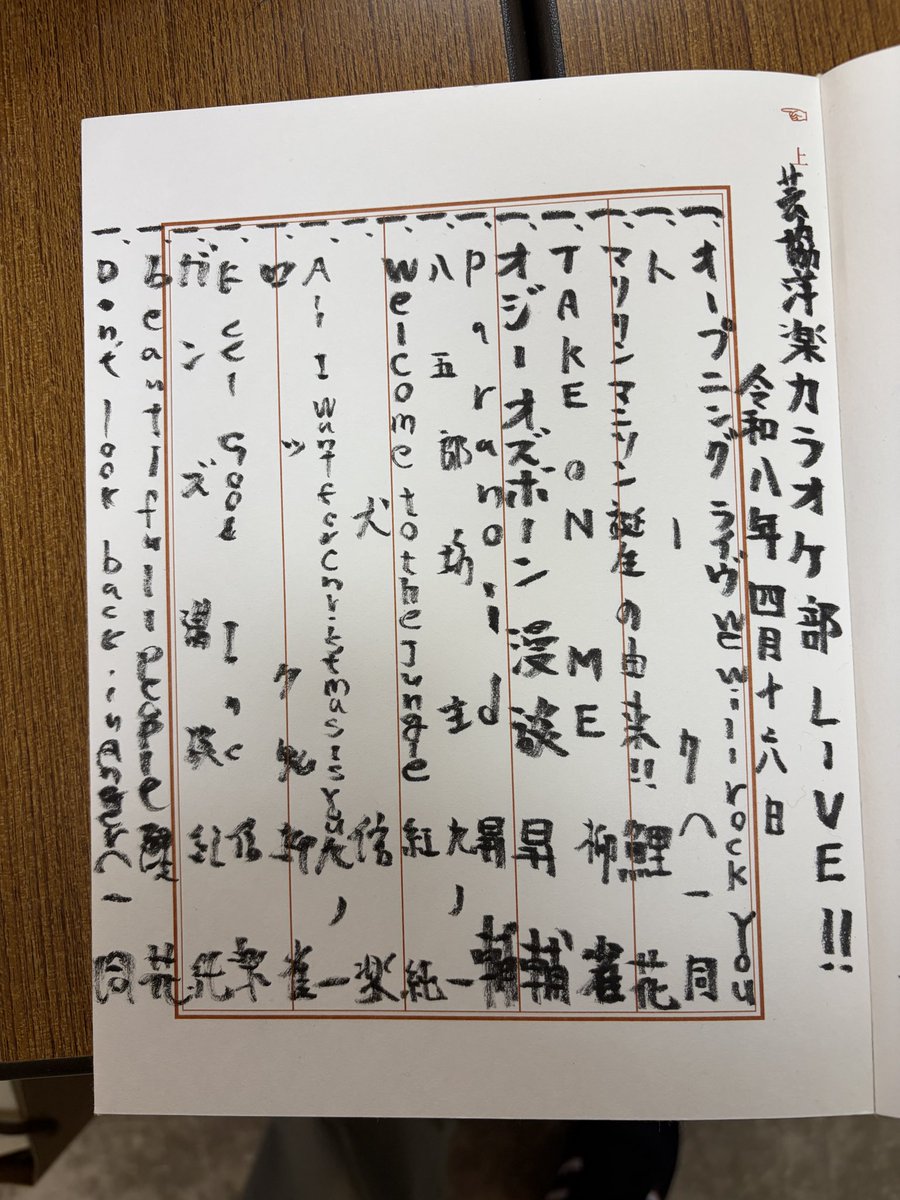 ☜
上
芸協洋楽カラオケ部 LIVE!!
令和八年四月十六日
一、オープニングライヴ We will rock You
一、トーク〈一同
一、マリリンマニリン誕生の由来!! 鯉花
一、TAKE ON ME 柳雀
一、オジーオズボーン漫談 昇輔
一、Paranoid 昇輔
一、八五郎坊主 九ノ一
一、Welcome to the Jungle 紅純
一、犬 信楽
一、All I Want for Chriktmas is you 九ノ一
一、ロックん 柳雀
一、Feel Good Inc 信楽
一、ガンズ漫談 紅純
一、beautifull people 鯉花
一、Don't look back in Anger〈一同